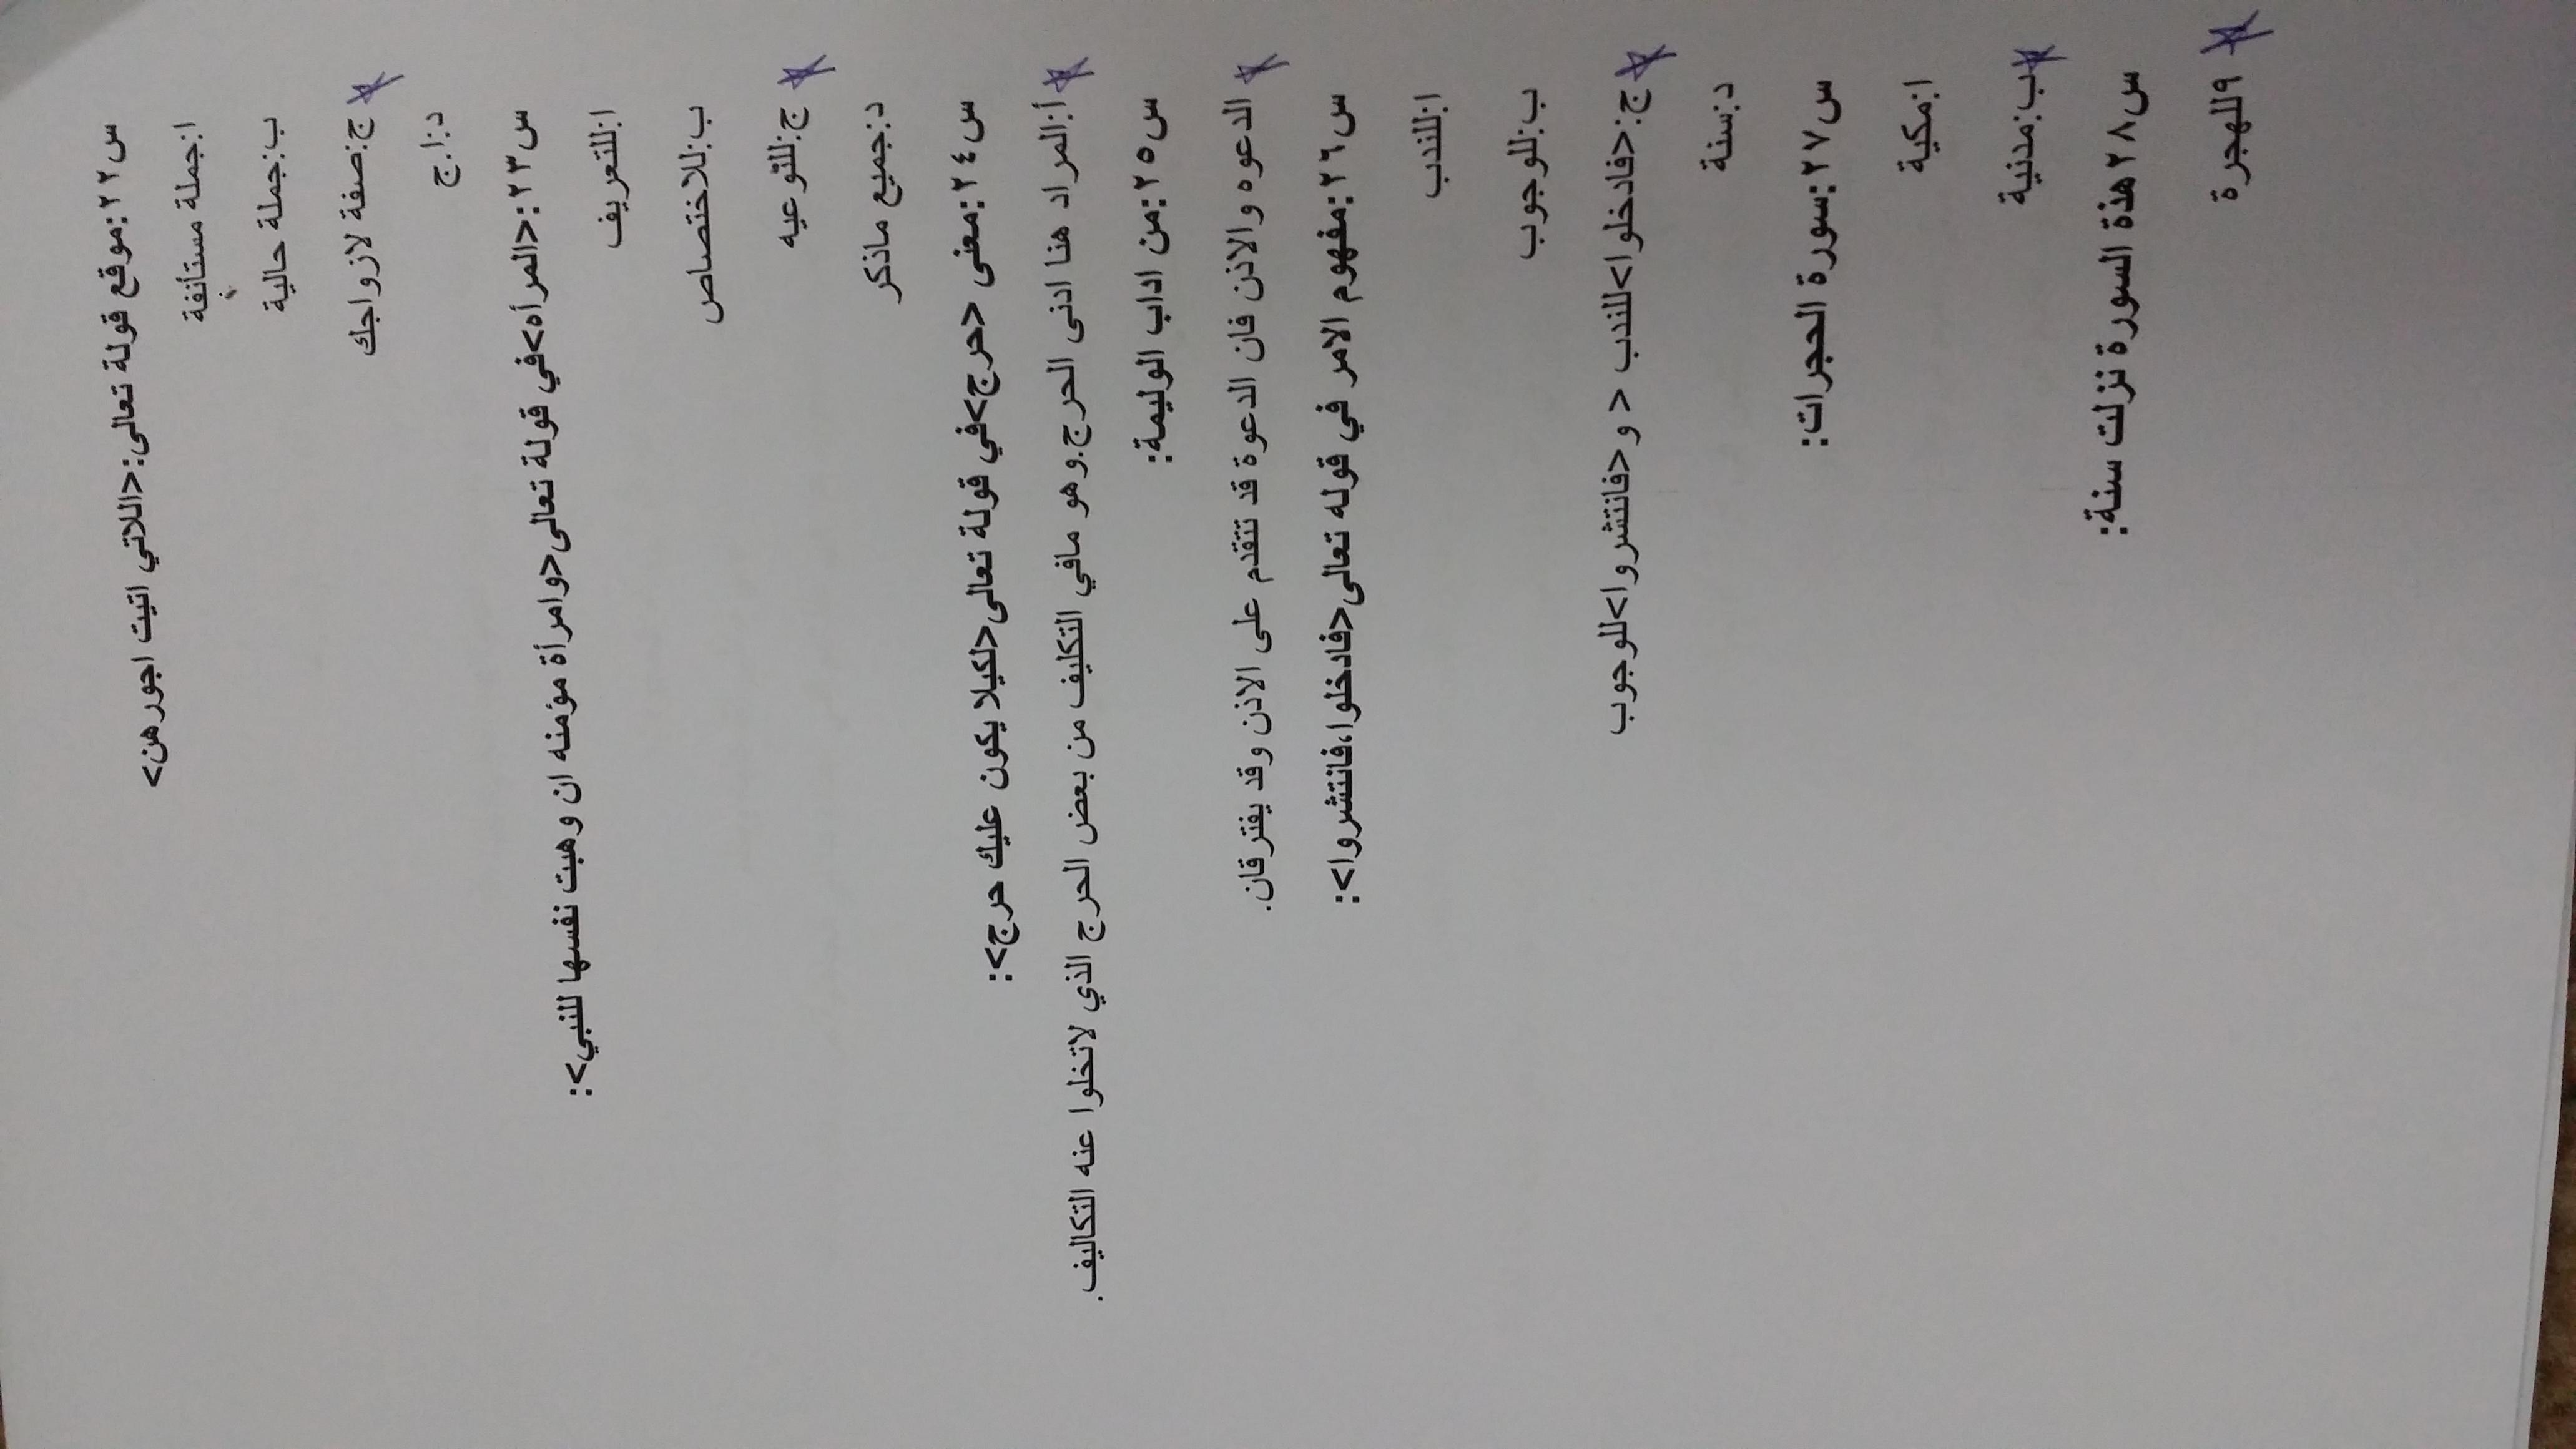 س٢٢:موقع قولة تعالى:<اللاتي اتيت اجورهن>
ا:جملة مستأنفة
ب:جملة حالية
ج:صفة لازواجك
د:ا.ج
س٢٣:<المرأه>في قولة تعالى<وامرأة مؤمنه ان وهبت نفسها للنبي>:
ا:للتعريف
ب:للاختصاص
ج:للتوعيه
د:جميع ماذكر
س٢٤:معنى <حرج>في قولة تعالى<لكيلا يكون عليك حرج>:
أ:المراد هنا ادنى الحرج.وهو مافي التكليف من بعض الحرج الذي لاتخلوا عنه التكاليف.
س٢٥:من اداب الوليمة:
الدعوه والاذن فان الدعوة قد تتقدم على الاذن وقد يفترقان.
س٢٦:مفهوم الامر في قوله تعالى<فادخلوا،فانتشروا>:
ا:للندب
ب:للوجوب
ج:<فادخلوا>للندب < و <فانتشروا>للوجوب
د:سنة
س٢٧:سورة الحجرات:
ا:مكية
ب:مدنية
س٢٨هذة السورة نزلت سنة:
٩للهجرة